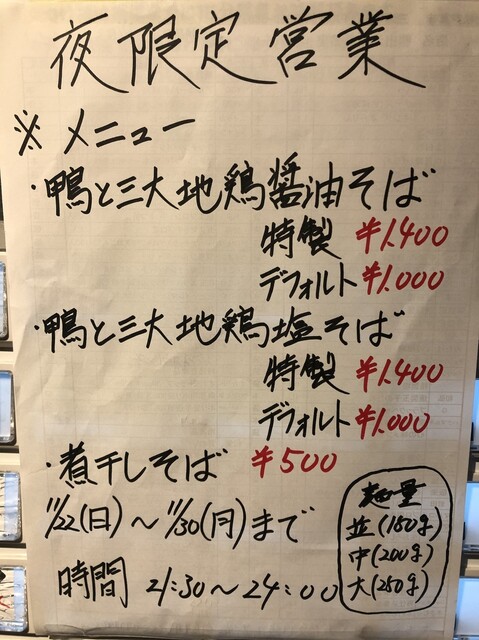 夜限定営業
※メニュー
・鴨と三大地鶏醤油そば
特製 ¥1.400
デフォルト ¥1.000
・鴨と三大地鶏塩そば
特製 ¥1.400
デフォルト ¥1.000
・煮干しそば ¥500
11/22(日)〜11/30(月)まで
時間 21:30〜24:00
麺量
並(150g)
中(200g)
大(250g)